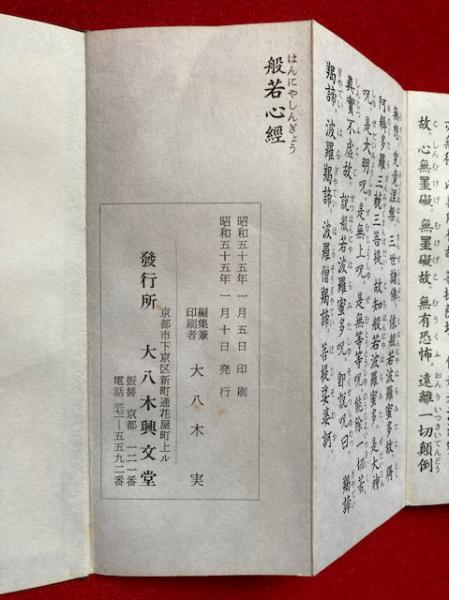 故、心無罣礙、無罣礙故、無有恐怖、遠離一切顛倒
夢想、究竟涅槃、三世諸佛、依般若波羅蜜多故、得
阿耨多羅三藐三菩提、故知般若波羅蜜多、是大神
呪、是大明呪、是無上呪、是無等等呪、能除一切苦、
眞實不虛故、說般若波羅蜜多呪、卽說呪曰、羯諦
羯諦、波羅羯諦、波羅僧羯諦、菩提娑婆訶
はんにゃしんぎょう
般若心經
昭和五十五年一月五日 印刷
昭和五十五年一月十日 発行
編集兼
印刷者 大八木 実
京都市下京区新町通花屋町上ル
發行所 大八木興文堂
振替 京都 一二一番
電話 三七一―五五九二番